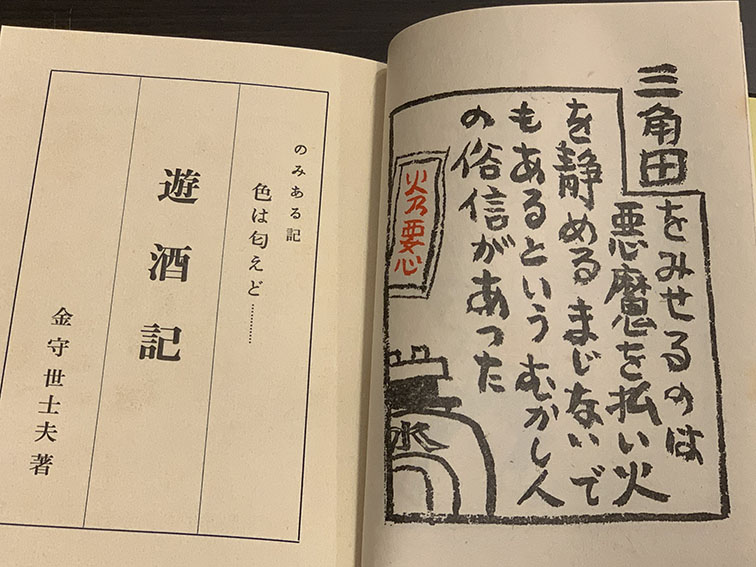 三角田をみせるのは
悪魔を払い火
を静めるまじないで
もあるというむかし人
の俗信があった
火乃要心
水
のみある記
色は匂えど…………
遊酒記
金守世士夫著